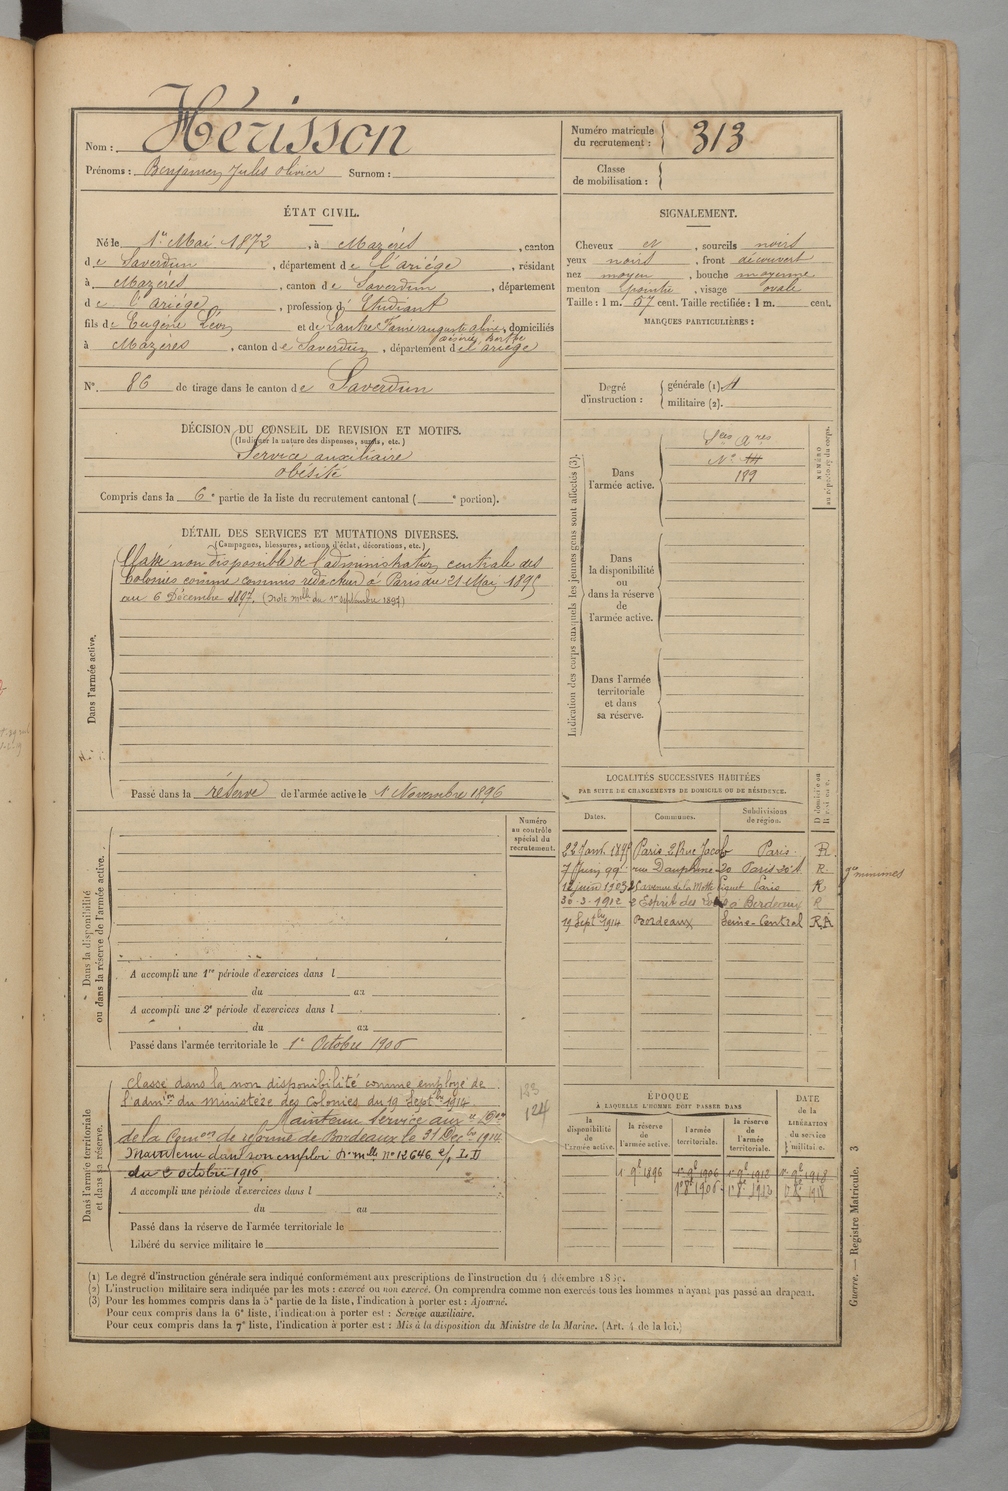 Nom : Hérisson
Prénoms : Benjamin Jules Olivier Surnom :
Numéro matricule du recrutement : 313
Classe de mobilisation :
ÉTAT CIVIL.
Né le 1er Mai 1872, à Mazères, canton
de Saverdun, département de l'ariège, résidant
à Mazères, canton de Saverdun, département
de l'ariège, profession d' Etudiant
fils de Eugène Léon et de Lautré Fanie augustine, domiciliés
à Mazères, canton de Saverdun, département de l'ariège
N° 86 de tirage dans le canton de Saverdun
SIGNALEMENT.
Cheveux et, sourcils noirs
yeux noirs, front découvert
nez moyen, bouche moyenne
menton pointu, visage ovale
Taille : 1 m. 57 cent. Taille rectifiée : 1 m. cent.
MARQUES PARTICULIÈRES :
Degré d'instruction : générale (1)
militaire (2).
DÉCISION DU CONSEIL DE REVISION ET MOTIFS.
(Indiquer la nature des dispenses, sursis, etc.)
Service auxiliaire
obésité
Compris dans la 6e partie de la liste du recrutement cantonal ( e portion).
DÉTAIL DES SERVICES ET MUTATIONS DIVERSES.
(Campagnes, blessures, actions d'éclat, décorations, etc.)
Dans l'armée active.
Classé non disponible de l'administration centrale des
Colonies comme commis rédacteur à Paris du 21 Mai 1895
au 6 Décembre 1897. (Note mlle du 1er septembre 1897)
Passé dans la réserve de l'armée active le 1 Novembre 1896
Indication des corps auxquels les jeunes gens sont affectés (3).
NUMÉRO au répertoire du corps.
Dans l'armée active.
Sces Ares
N° 
189
Dans la disponibilité ou dans la réserve de l'armée active.
Dans l'armée territoriale et dans sa réserve.
LOCALITÉS SUCCESSIVES HABITÉES
PAR SUITE DE CHANGEMENTS DE DOMICILE OU DE RÉSIDENCE.
Dates. Communes. Subdivisions de région. Domicile ou Résidence.
22 Janv. 1895 Paris 2 Rue Jacob Paris R
7 Juin 99 rue Dauphine 30 Paris R.
12 juin 1903 avenue de la Motte Piquet Paris R
30-3-1912 Esprit des Lois à Bordeaux R
19 Septbre 1914 Bordeaux Seine-Central R.A
Dans la disponibilité ou dans la réserve de l'armée active.
Numéro au contrôle spécial du recrutement.
A accompli une 1re période d'exercices dans l
du au
A accompli une 2e période d'exercices dans l
du au
Passé dans l'armée territoriale le 1er Octobre 1906
Dans l'armée territoriale et dans sa réserve.
Classé dans la non disponibilité comme employé de
l'admon du Ministère des Colonies du 19 Septbre 1914.
Maintenu service aux
de la Comon de réforme de Bordeaux le 31 Decbre 1914.
Maintenu dans son emploi D. mlle n° 12646
du 2 octobre 1916.
183
124
A accompli une période d'exercices dans l
du au
Passé dans la réserve de l'armée territoriale le
Libéré du service militaire le
ÉPOQUE
A LAQUELLE L'HOMME DOIT PASSER DANS
la disponibilité de l'armée active. la réserve de l'armée active. l'armée territoriale. la réserve de l'armée territoriale. DATE de la LIBÉRATION du service militaire.
1 9e 1896 1er 9e 1906 1er 9e 1912 1er 9e 1918
1er 8e 1906 1er 8e 1912 1er 8e 1918
Guerre. — Registre Matricule. 3
(1) Le degré d'instruction générale sera indiqué conformément aux prescriptions de l'instruction du 4 décembre
(2) L'instruction militaire sera indiquée par les mots : exercé ou non exercé. On comprendra comme non exercés tous les hommes n'ayant pas passé au drapeau.
(3) Pour les hommes compris dans la 5e partie de la liste, l'indication à porter est : Ajourné.
Pour ceux compris dans la 6e liste, l'indication à porter est : Service auxiliaire.
Pour ceux compris dans la 7e liste, l'indication à porter est : Mis à la disposition du Ministre de la Marine. (Art. 4 de la loi.)